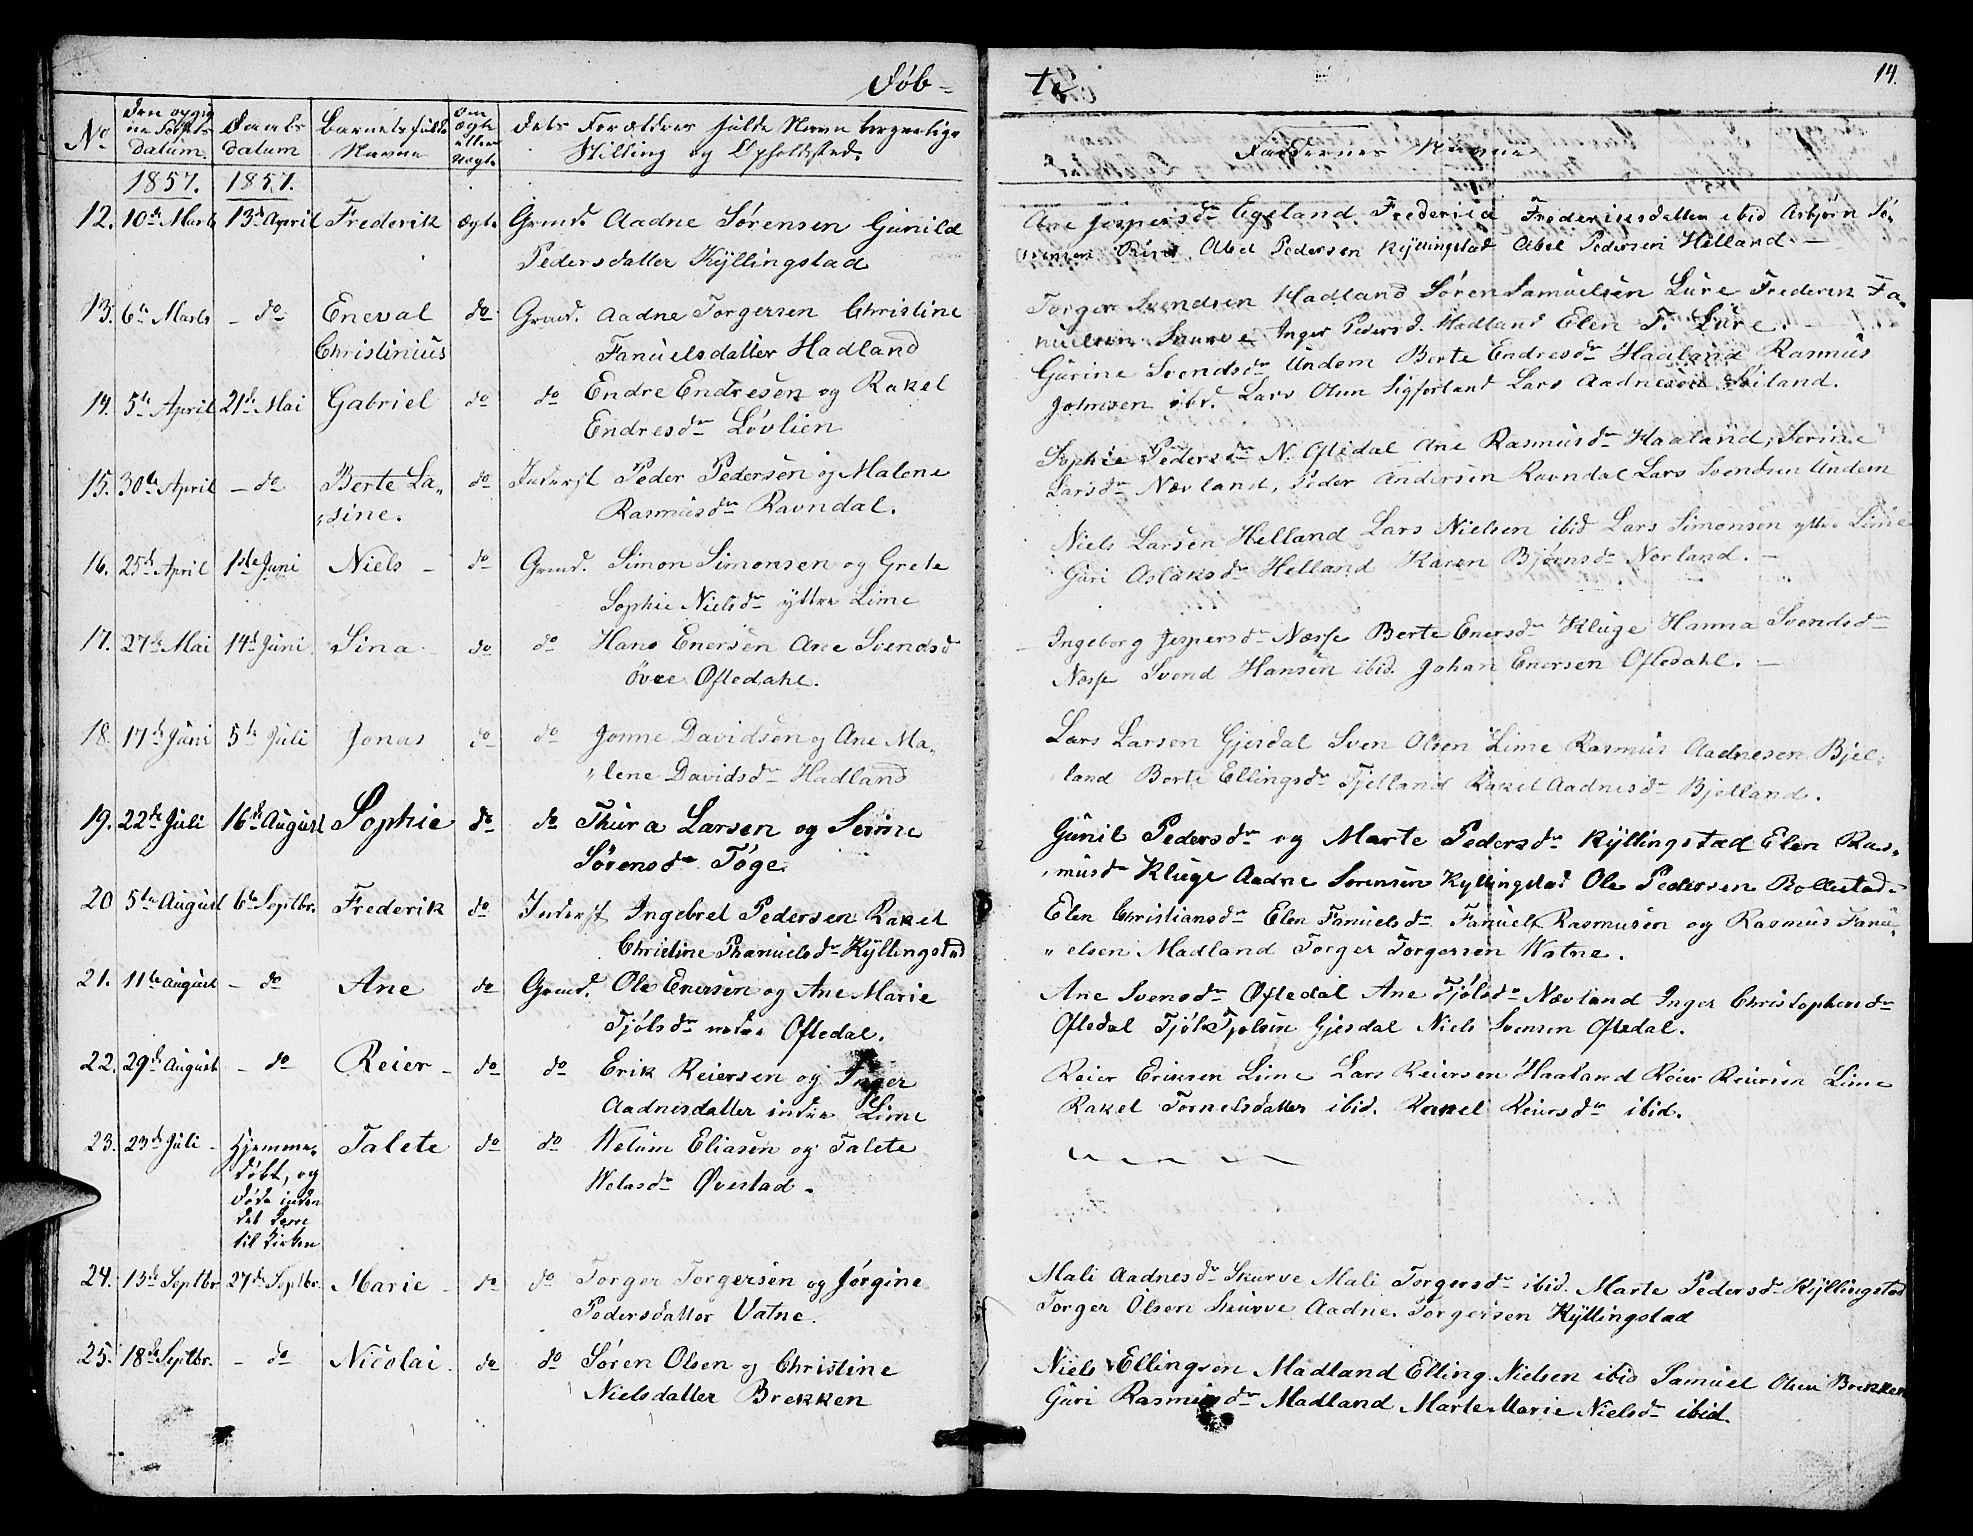 Døb-
te
14.
No
Barnets fulde
Navn
Daabs
datum
datum.
Om
Ægte
eller
Uægte
dets Forældres fulde Navn borgerlige
Stilling og Opholdsted.
Faddernes Navne
1857. 1857.
12. 10de Marts 13de April Frederik Ægte Grmd. Aadne Sørensen Gunild
Pedersdatter Kyllingstad
Ane Jespersdr Egeland Fredericudatter ibid Asbjørn Sø-
rensen Abel Pedersen Kyllingstad Abel Pedersen Helland. —
13. 6te Marts — do Eneval do Grmd. Aadne Torgersen Christine
Christinius Fanuelsdatter Hadland
Torger Svendsen Hadland Søren Samuelsen Lure Frederik Fa-
nuelsen Skurve Inger Pedersd. Hadland Elen F. Lure. —
14. 5te April 21de Mai Gabriel do do Endre Endresen og Rakel
Endresdr Løvlien
Gurine Svendsdr Undem Berte Endresdr Haaland Rasmus
Johnsen ibd. Lars Olsen Lars Aadnesen
15. 30te April — do Berte La- do Inderst Peder Pedersen og Malene
"sine. Rasmusdr Ravndal.
Sophie Pedersdr N. Oftedal Ane Rasmusdr Haaland, Serine
Larsdr Nævland, Peder Andersen Ravndal Lars Svendsen Undem
16. 25de April 1ste Juni Niels — do Grmd. Simon Simonsen og Grete
Sophie Nielsdr yttre Lime
Niels Larsen Helland Lars Nielsen ibid Lars Simonsen yttre Lime
Guri Aslaksdr Helland Karen Bjørnsdr Norland. —
17. 27de Mai 14de Juni. Sina — do do Hans Enersen Ane Svendsd
övre Oftedahl.
Ingeborg Jespersdr Næsse Berte Enersdr Kluge Hanna Svendsdr
Næsse Svend Hansen ibid. Johan Enersen Oftedahl. —
18. 17de Juni 5te Juli Jonas do do Jonne Davidsen og Ane Ma-
"lene Davidsdr Hadland
Lars Larsen Gjesdal Sven Olsen Lime Rasmus Aadnesen Bjel-
land Berte Ellingsdr Fjelland Rakel Aadnesdr Bjelland.
19. 22de Juli 16de August Sophie do do Thura Larsen og Serine
Sørensdr Töge.
Gunil Pedersdr og Marte Pedersdr Kyllingstad Elen Ras-
"musdr Kluge Aadne Sørensen Kyllingstad Ole Pedersen Rollestad.
20 5te August 6te Septbr. Frederik do Inderst Ingebret Pedersen Rakel
Christine Phanuelsdr Kyllingstad
Elen Christiansdr Elen Fanuelsdr Fanuel Rasmusen og Rasmus Fanu-
"elsen Madland Torger Torgersen Watne.
21. 11te August — do Ane do Grmd. Ole Enersen og Ane Marie
Tjølsdr nedre Oftedal.
Ane Svensdr Oftedal Ane Tjølsdr Nævland Inger Christophersdr
Oftedal Tjøl Tjølsen Gjesdal Niels Svensen Oftedal.
22. 29de August — do Reier — do do Erik Reiersen og Inger
Aadnesdatter indre Lime
Reier Eriksen Lime Lars Reiersen Haaland Reier Reiersen Lime
Rakel Tornelsdatter ibid. Rakel Reiersdr ibid.
23. 23de Juli — Hjemme- Talete do do Welum Eliasen og Talete
døbt, og Welasdr Øvestad.
døde inden
det kom
til Kirken
24. 13de Septbr 27de Septbr. Marie — do do Torger Torgersen og Jørgine
Pedersdatter Vatne.
Mali Aadnesdr Skurve Mali Torgersdr ibid. Marte Pedersdr Kyllingstad
Torger Olsen Skurve Aadne Torgersen Kyllingstad
25. 18de Septbr. — do Nicolai. do do Søren Olsen og Christine
Nielsdatter Brekken
Niels Ellingsen Madland Elling Nielsen ibid Samuel Olsen Brekken
Guri Rasmusdr Madland Marte Marie Nielsdr ibid.